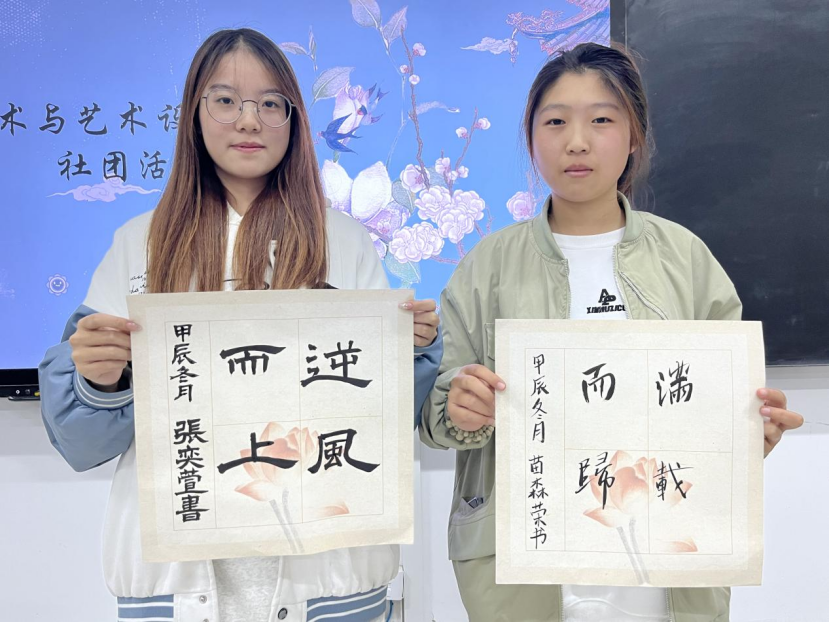 术与艺术设
社团活
逆風
而上
甲辰冬月
張奕萱書
滿載
而歸
甲辰冬月
苗森荣书